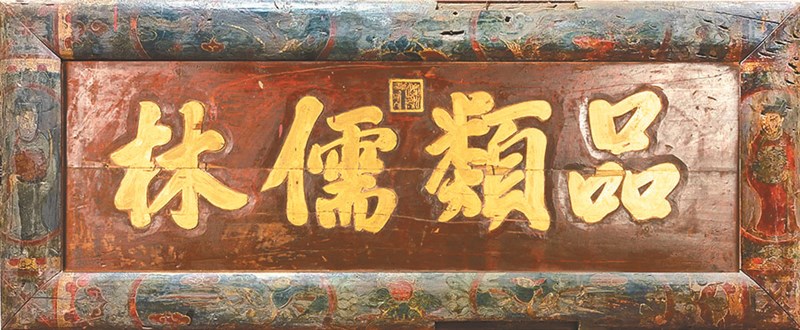 品類儒林